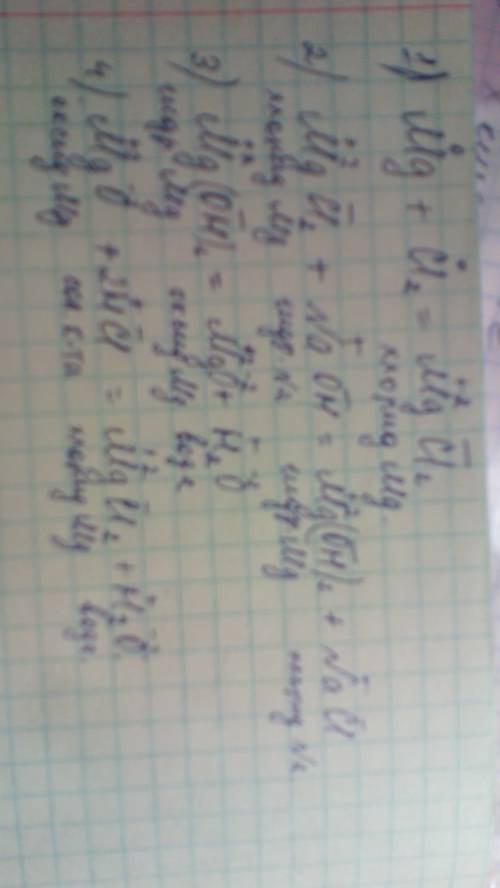 1) Mg⁰ + Cl₂⁰ = Mg⁺²Cl₂⁻
хлорид Mg.
2) Mg⁺²Cl₂⁻ + Na⁺OH⁻ = Mg⁺²(OH)₂⁻ + Na⁺Cl⁻
хлорид Mg гидр Na гидр Mg хлорид Na
3) Mg⁺²(OH)₂⁻ = Mg⁺²O⁻² + H₂⁺O⁻²
гидр Mg оксид Mg вода
4) Mg⁺²O⁻² + 2H⁺Cl⁻ = Mg⁺²Cl₂⁻ + H₂⁺O⁻².
оксид Mg сол к-та хлорид Mg вода.